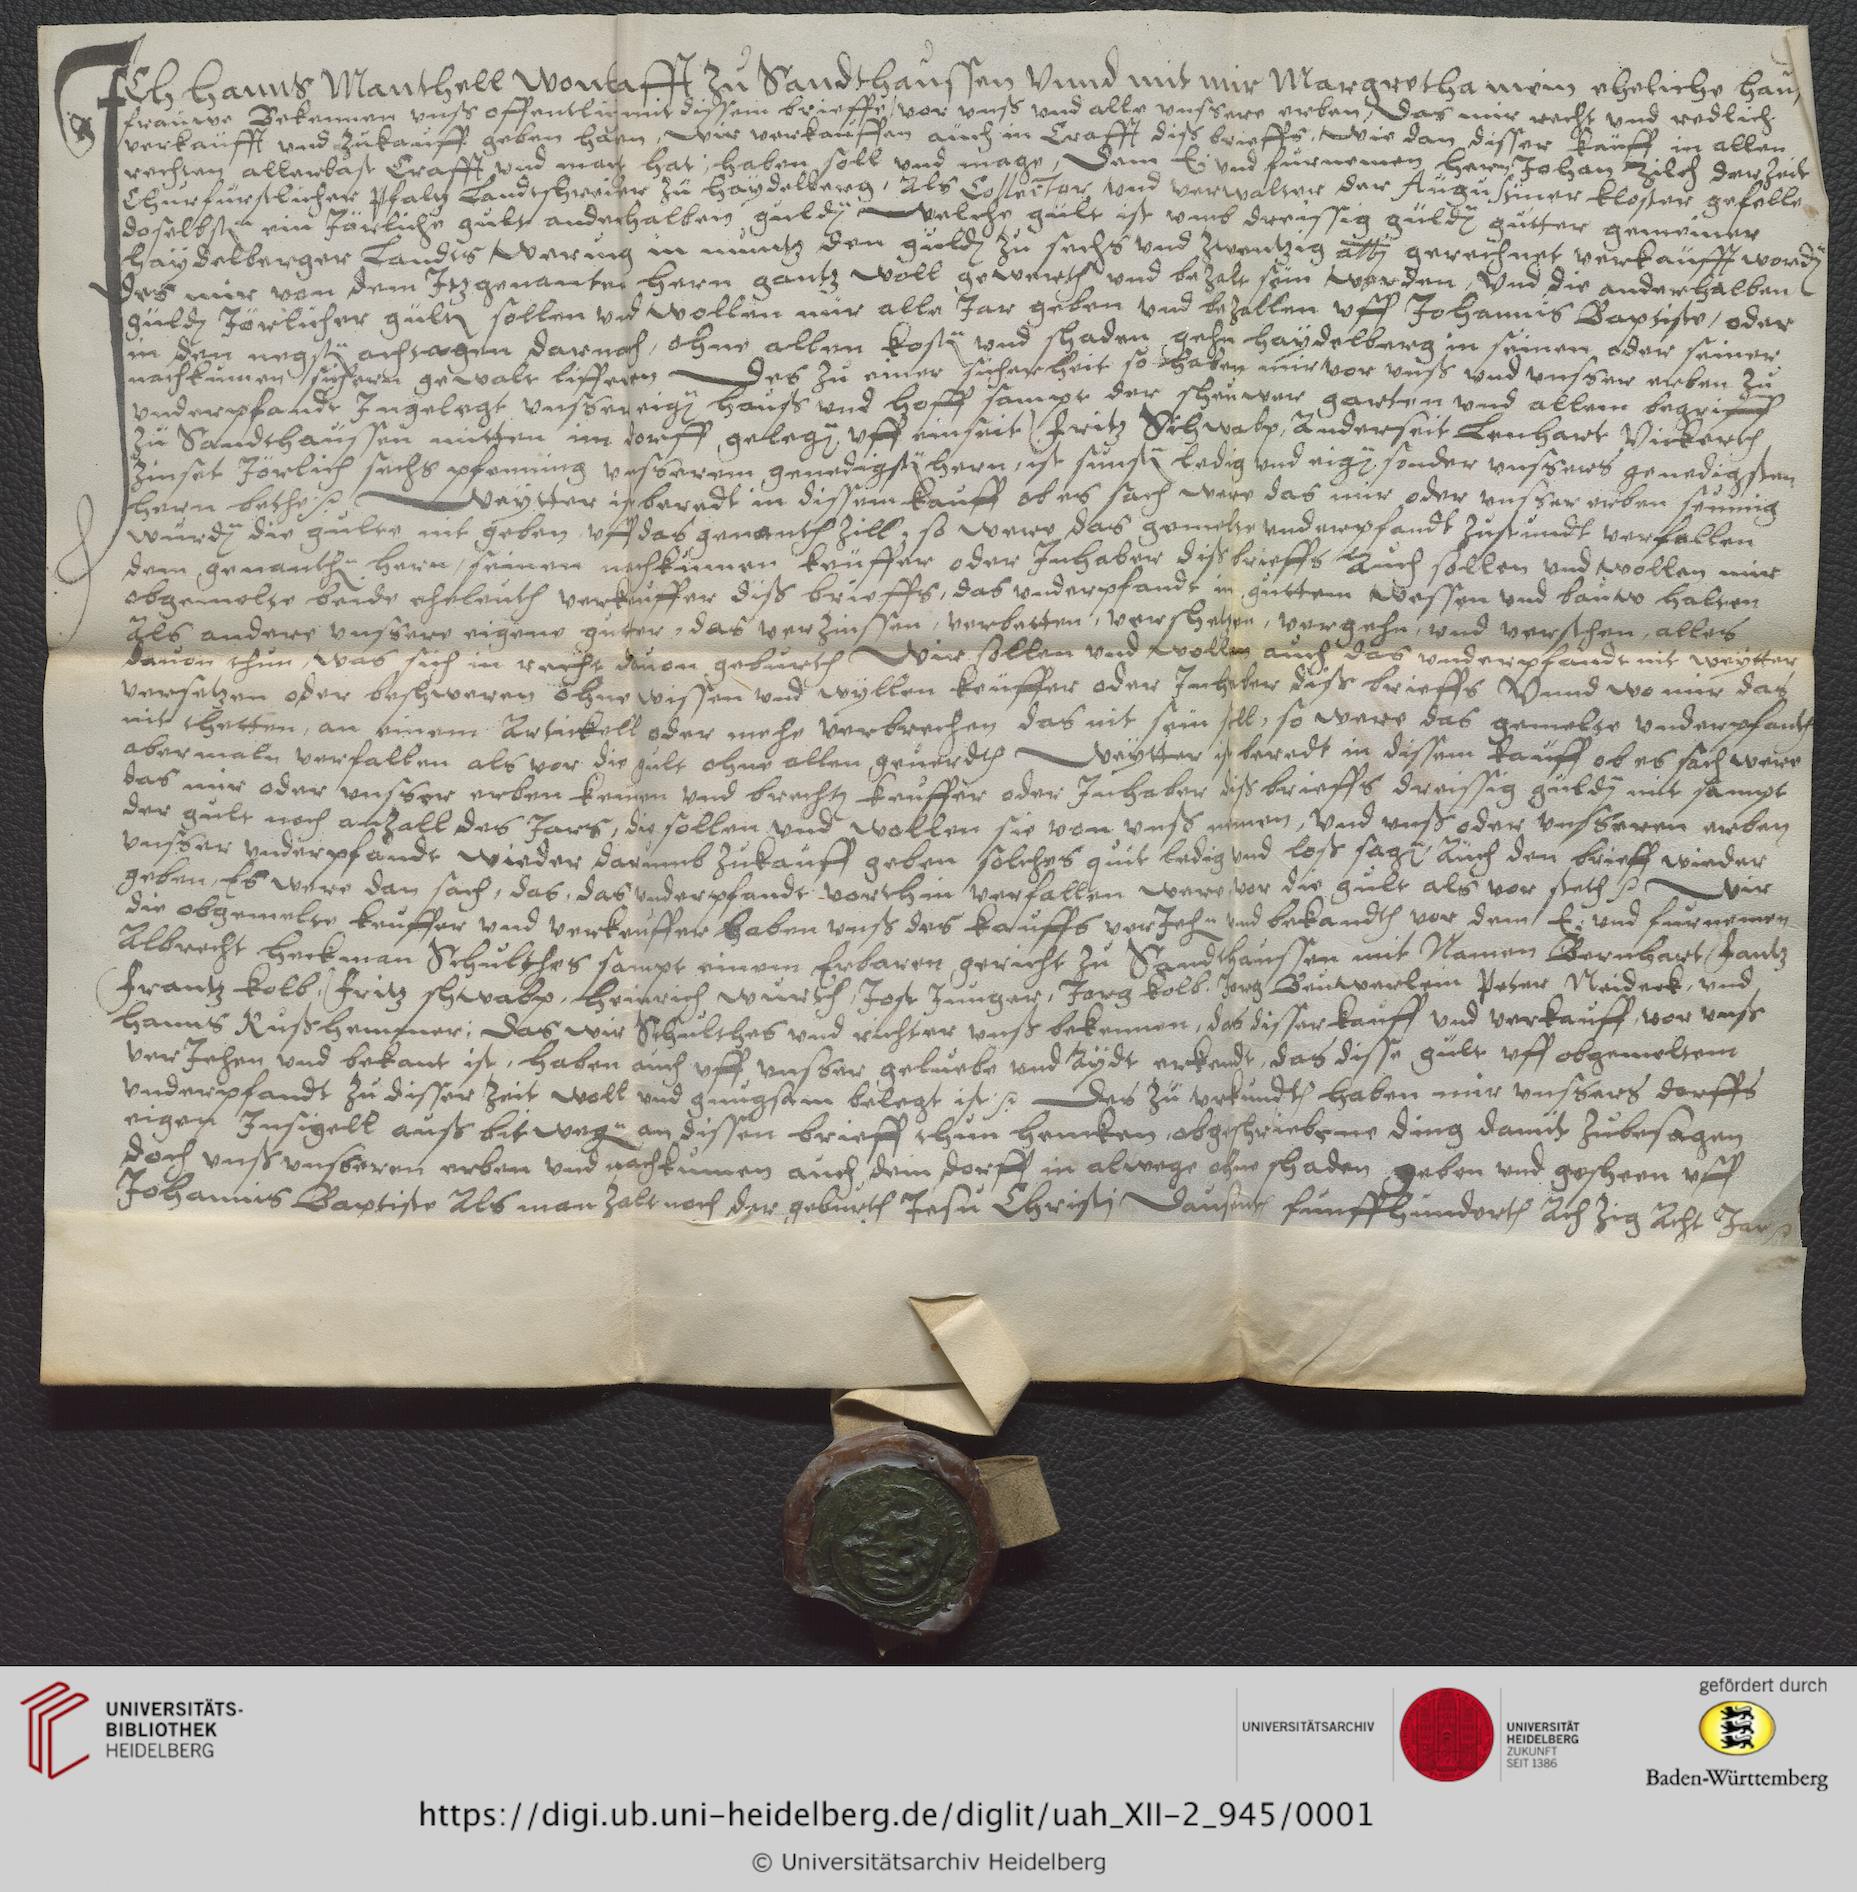 ICh Hanns Manthell wonhafft Zu Sandthaussen Vnnd mit mir Margretha mein eheliche hauß
frauwe Bekennen vnß offentlich mit dissem brieffe, vor vnß vnd alle vnssere erben, Das mir recht vnd redlich
verkaufft vnd Zukauff geben haen, wir verkauffen auch in Crafft diß brieffs, wie dan disser kauff in allen
rechten allerbast Crafft vnd macht hat, haben soll vnd mage, Dem E: vnd furnemen Hern Johan Zilch der Zeit
Churfurstlicher Pfaltz Landtschreiber zu Haydelberg, Als Collector vnd verwalter der Augustiner kloster gefelle
doselbsten ein Jörliche gult anderhalben guldẽ Welche gult ist vmb dreissig guldẽ gutter gemeiner
Haydelberger Landts werung in muntz den guldẽ zu sechs vnd zwentzig albẽ gerechnet verkaufft wordẽ
des mir von dem Jtzgenanten Hern gantz woll gewerth vnd bezalt sein worden, Vnd die anderhalben
guldẽ Jörlicher gult sollen vnd wollen mir alle Jar geben vnd bezallen vff Johannis Baptiste, oder
in den negstẽ achtagen darnach, ohne allen kostẽ vnd schaden gehn Haydelberg in seinen oder seiner
nachkumen sichern gewalt liffern Des zu einer sicherheit so haben mir vor vnß vnd vnsser erben zu
vnderpfandt Jngelegt vnsser eigẽ hauß vnd hoff sampt der scheuwer garten vnd allem begriff
zu Sandthaussen mitten im dorff gelegẽ, vff einseit Fritz Schwabp, Anderseit Lenhart Vickerth
zinset Jörlich sechs pfenning vnsserem genedigstẽ hern, ist sunstẽ ledig vnd eigẽ, sonder vnssers genedigsten
hern bethe Weytter ist beredt in dissem kauff ob es sach were das mir oder vnsser erben seumig
wurdẽ die gulte nit geben vff das genanth Zill, so were das gemelte vnderpfandt zustundt verfallen
dem genanthen hern, seinen nachkumen keuffer oder Jnhaber diß brieffs Auch sollen vnd wollen mir
obgemelte beide eheleuth verkeuffer diß brieffs, das vnderpfandt in guttem wessen vnd bauw halten
Als andere vnssere eigene gutter, das verzinssen, verbetten, verschetzen, vergehn, vnd versehen, alles
dauon thun, was sich in recht dauon geburth Wir sollen vnd wollen auch das vnderpfandt nit weytter
versetzen oder beschweren ohne wissen vnd wyllen keuffer oder Jnhaber diß brieffs Vnnd wo mir das
nit thetten, an einem Artickell oder mehe verbrechen das nit sein soll, so were das gemelte vnderpfandt
abermaln verfallen als vor die gult ohne allen geuerdth Weytter ist beredt in dissem kauff ob es sach were
das mir oder vnsser erben kemen vnd brechtẽ keuffer oder Jnhaber diß brieffs dreissig guldẽ mit sampt
der gult noch anzall des Jars, die sollen vnd wollen sie von vnß nemen, vnd vnß oder vnsseren erben
vnsser vnderpfandt wieder darumb zukauff geben solches quit ledig vnd loß sagẽ, Auch den brieff wieder
geben, Es were dan sach, das, das vnderpfandt vorthin verfallen were vor die gult als vor steth Wir
die obgemelte keuffer vnd verkeuffer haben vnß des kauffs verJehn vnd bekandth vor dem E: vnd furnemen
Albrecht Heckman Schulthes sampt einem Erbaren gericht zu Sandthaussen mit Namen Bernhart Fantz
Frantz kolb, Fritz schwabp, Heinrich wurth, Jost Junger, Jorg kolb, Jorg Beuwerlein Peter Neideck, vnd
Hanns Rußhemmer, Das wir Schulthes vnd richter vnß bekennen, das disser kauff vnd verkauff, vor vnß
verJehen vnd bekant ist, haben auch vff vnsser geluebe vnd Aydt erkendt, das disse gult vff obgemeltem
vnderpfandt zu disser Zeit woll vnd gnugsam belegt ist Des zu vrkundth haben mir vnssers dorffs
eigen Jnsigell auß bit wegẽ an dissen brieff thun hencken, obgeschriebene ding damit zubesagen
doch vnß vnsseren erben vnd nachkumen auch dem dorff in alwege ohne schaden geben vnd gescheen vff
Johannis Baptiste Als man zalt noch der geburth Jesu Christi Dausent funffhunderth Achzig Acht Jar
UNIVERSITÄTS-
BIBLIOTHEK
HEIDELBERG
UNIVERSITÄTSARCHIV
UNIVERSITÄT
HEIDELBERG
ZUKUNFT
SEIT 1386
gefördert durch
Baden-Württemberg
https://digi.ub.uni-heidelberg.de/diglit/uah_XII-2_945/0001
© Universitätsarchiv Heidelberg